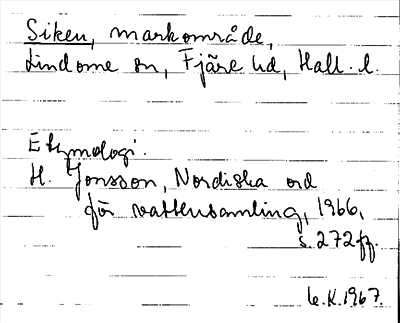 Siken, markområde,
Lindome sn, Fjäre hd, Hall. l.
Etymologi.
H. Jonsson, Nordiska ord
för vattensamling, 1966,
s. 272 ff.
K.1967.